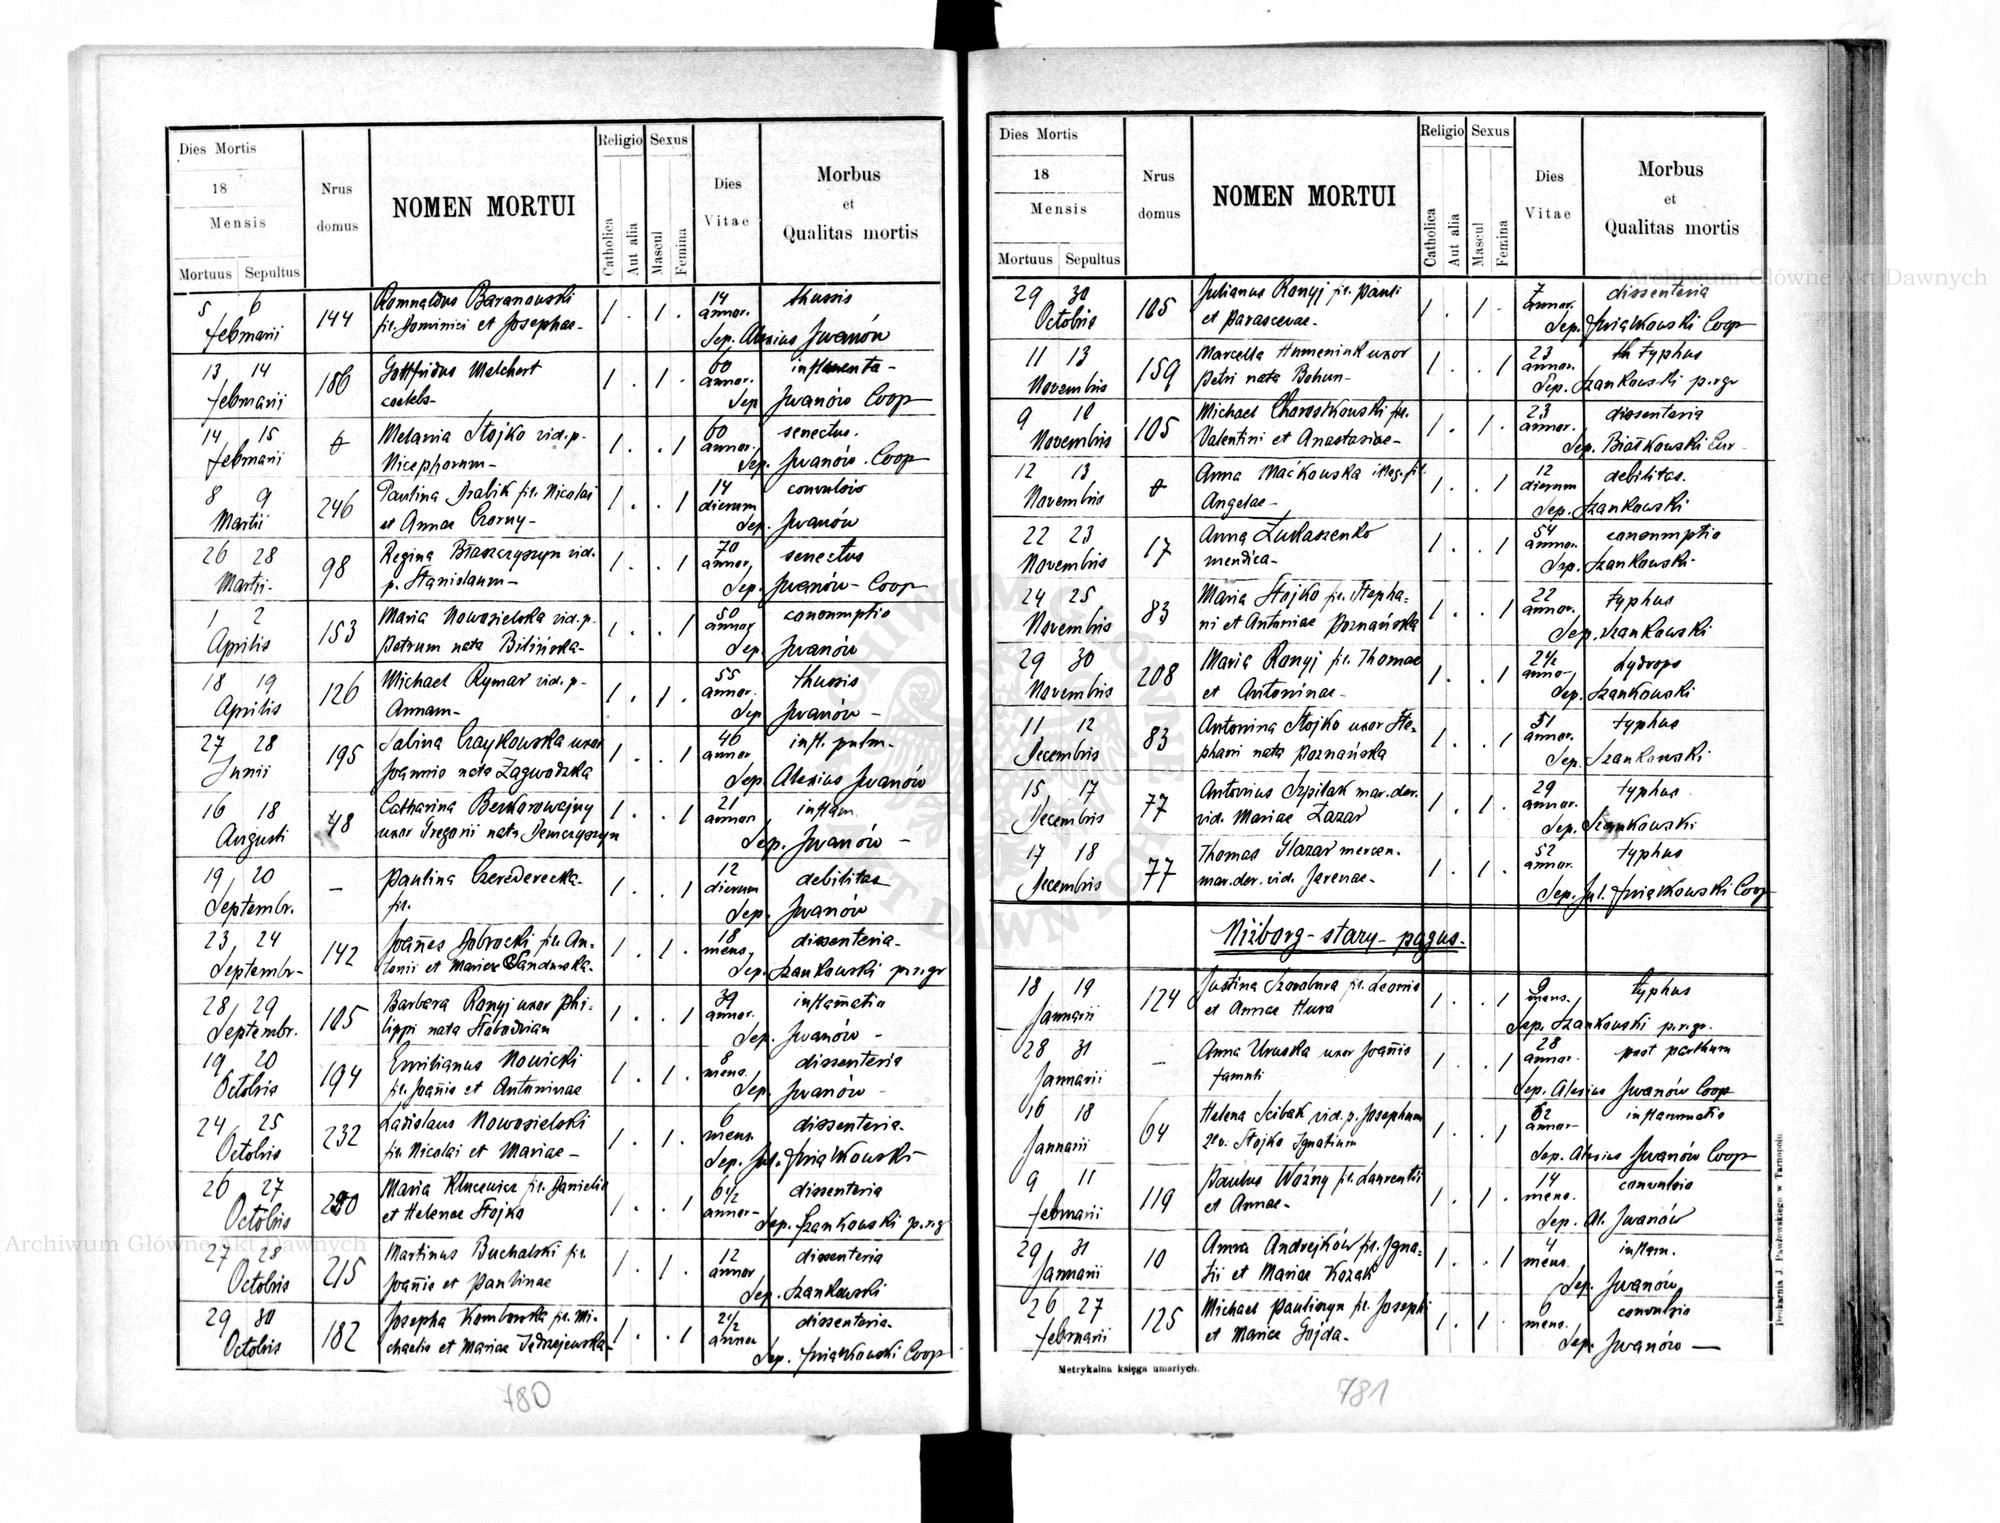 Dies Mortis
18
Mensis
Mortuus Sepultus
Nrus domus
NOMEN MORTUI
Religio
Catholica
Aut alia
Sexus
Mascul
Femina
Dies Vitae
Morbus
et
Qualitas mortis
5 6 144 Romualdus Baranowski 1 . 1 . 14 thussis
februarii fil. Dominici et Josephae annor.
Sep. Alexius Jwanów
13 14 186 Gottfridus Melchert 1 . 1 . 60
februarii caelebs annor.
Sep Jwanów Coop
14 15 Melania Stojko vid. p. 1 . . 1 60 senectus.
februarii Nicephorum annor.
Sep. Jwanów. Coop
8 9 246 Paulina Drabik fil. Nicolai 1 . . 1 14 convulsio
Martii et Annae Czorny dierum
Sep. Jwanów
26 28 98 Regina Błaszczyszyn vid. 1 . . 1 70 senectus
Martii p. Stanislaum annor.
Sep. Jwanów - Coop
1 2 153 Maria Nowosielska vid. p. 1 . . 1 50 consumptio
Aprilis Petrum nata Bilińska annor
Sep. Jwanów
18 19 126 Michael Rymar vid. p. 1 . 1 . 55 thussis
Aprilis Annam annor.
Sep Jwanów
27 28 195 Sabina Czaykowska uxor 1 . . 1 46 infl. pulm.
Junii Joannis nata Zagwodzka annor
Sep. Alexius Jwanów
16 18 48 Catharina Bezkorowajny 1 . . 1 21 inflam.
Augusti uxor Gregorii nata Demczyszyn annor
Sep. Jwanów
19 20 — Paulina Czerederecka 1 . . 1 12 debilitas
Septembr. fil. dierum
Sep. Jwanów
23 24 142 Joañes Dobrocki fil. An- 1 . 1 . 18 dissenteria
Septembr. tonii et Mariae Sandurska mens.
Sep. Szankowski p.r.gr
28 29 105 Barbara Ronyj uxor Phi- 1 . . 1 39 inflam̃atio
Septembr. lippi nata Słobodzian annor.
Sep. Jwanów
19 20 194 Emilianus Nowicki 1 . 1 . 8 dissenteria
Octobris fil. Joañis et Antoninae mens.
Sep. Jwanów
24 25 232 Ladislaus Nowosielski 1 . 1 . 6 dissenteria.
Octobris fil. Nicolai et Mariae mens.
Sep. Jul. Źwiałkowski
26 27 Maria Klucewicz fil. Danielis 1 . . 1 6½ dissenteria
Octobris et Helenae Stojko annor
Sep. Szankowski p.r.g
27 28 215 Martinus Buchalski fil. 1 . 1 . 12 dissenteria
Octobris Joañis et Paulinae annor
Sep. Szankowski
29 30 182 Josepha Kombowska fil. Mi- 1 . . 1 2½ dissenteria.
Octobris chaelis et Mariae Jędrzejewska annor
Sep. Coop
780
Dies Mortis
18
Mensis
Mortuus Sepultus
Nrus domus
NOMEN MORTUI
Religio
Catholica
Aut alia
Sexus
Mascul
Femina
Dies Vitae
Morbus
et
Qualitas mortis
29 30 105 Julianus Ronyj fil. Pauli 1 . 1 . 7 dissenteria
Octobris et Parascevae annor.
Sep. Coop
11 13 159 Marcella Humeniuk uxor 1 . . 1 23 typhus
Novembris Petri nata Bohun annor.
Sep. Szankowski p.r.gr
9 10 105 Michael Chorostkowski fil. 1 . 1 . 23 dissenteria
Novembris Valentini et Anastasiae annor.
Sep. Białkowski Cur
12 13 Anna Maćkowska illeg. fil. 1 . . 1 12 debilitas.
Novembris Angelae dierum
Sep. Szankowski
22 23 17 Anna Łukaszenko 1 . . 1 54 consumptio
Novembris mendica annor.
Sep. Szankowski
24 25 83 Maria Stojko fil. Stepha= 1 . . 1 22 typhus
Novembris ni et Antoniae Poznańska annor.
Sep. Szankowski
29 30 208 Maria Ronyj fil. Thomae 1 . . 1 2½ hydrops
Novembris et Antoninae anno
Sep. Szankowski
11 12 83 Antonina Stojko uxor Ste= 1 . . 1 51 typhus
Decembris phani nata Poznańska annor.
Sep. Szankowski
15 17 77 Antonius Szpilak mar. der. 1 . 1 . 29 typhus
Decembris vid. Mariae Łazar annor.
Sep. Szankowski
17 18 77 Thomas Glazar mercen. 1 . 1 . 52 typhus
Decembris mar. der. vid. Jarenae annor.
Sep. Jul. Coop
Niżborg - stary - pagus.
18 19 124 Justina Szarabura fil. Leonis 1 . . 1 9 typhus
Januarii et Annae Hura mens.
Sep. Szankowski p.r.gr.
28 31 — Anna Uruska uxor Joañis 1 . . 1 28 post parthum
Januarii famuli annor.
Sep. Alexius Jwanów Coop
16 18 64 Helena Scibak vid. p. Josephum 1 . . 1 62 inflammatio
Januarii 2v. Stojko Ignatium annor
Sep. Alexius Jwanów Coop
9 11 119 Paulus Woźny fil. Laurentii 1 . 1 . 14 convulsio
februarii et Annae mens.
Sep. Al. Jwanów
29 31 10 Anna Andrejków fil. Igna= 1 . . 1 4 inflam.
Januarii tii et Mariae Kozak mens.
Sep. Jwanów
26 27 125 Michael Pauliszyn fil. Josephi 1 . 1 . 6 convulsio
februarii et Mariae Gojda mens.
Sep. Jwanów
Metrykalna księga umarłych.
Drukarnia J. Pawłowskiego w Tarnopolu.
781
Archiwum Główne Akt Dawnych
Archiwum Główne Akt Dawnych
ARCHIWUM GŁÓWNE AKT DAWNYCH